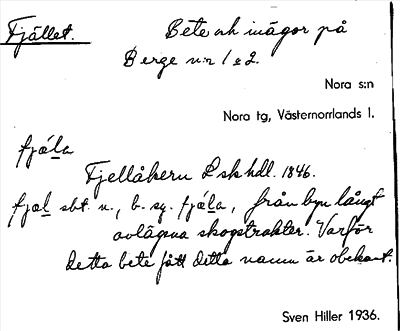 Fjället.
Bete och inägor på
Berge n:r 1 o 2.
Nora s:n
Nora tg, Västernorrlands l.
fjäla
Fjellåkern L sk hdl. 1846.
fjäl sbt. n., b. sg. fjäla, från byn långt
avlägsna skogstrakter. Varför
detta bete fått detta namn är obekant.
Sven Hiller 1936.